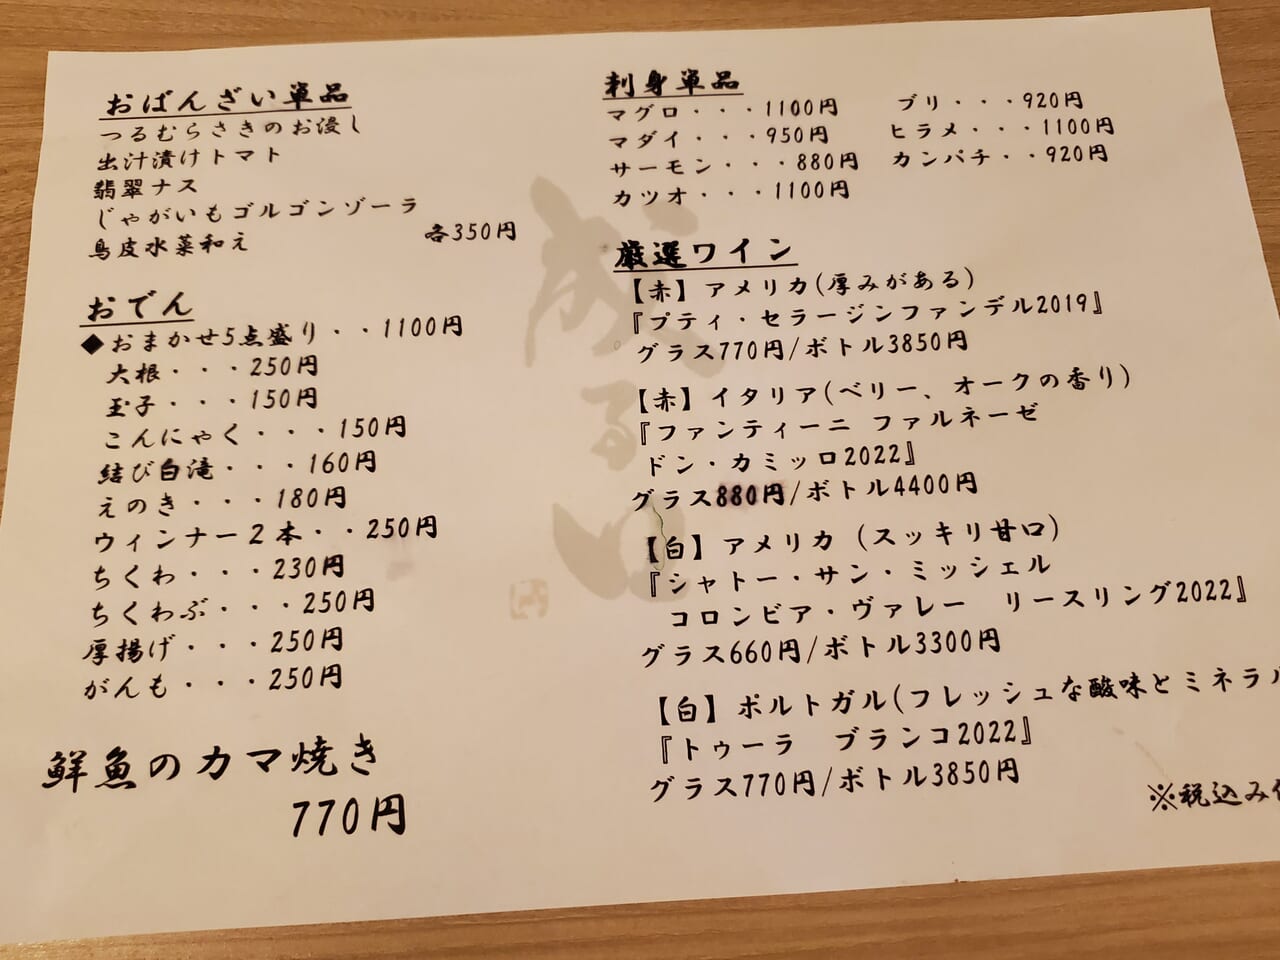 おばんざい単品
つるむらさきのお浸し
出汁漬けトマト
翡翠ナス
じゃがいもゴルゴンゾーラ
鳥皮水菜和え
各350円
おでん
◆おまかせ5点盛り・・1100円
大根・・・250円
玉子・・・150円
こんにゃく・・・150円
結び白滝・・・160円
えのき・・・180円
ウィンナー２本・・250円
ちくわ・・・230円
ちくわぶ・・・250円
厚揚げ・・・250円
がんも・・・250円
鮮魚のカマ焼き
770円
刺身単品
マグロ・・・1100円
マダイ・・・950円
サーモン・・・880円
カツオ・・・1100円
ブリ・・・920円
ヒラメ・・・1100円
カンパチ・・920円
厳選ワイン
【赤】アメリカ(厚みがある)
『プティ・セラージンファンデル2019』
グラス770円/ボトル3850円
【赤】イタリア(ベリー、オークの香り)
『ファンティーニ ファルネーゼ
ドン・カミッロ2022』
グラス880円/ボトル4400円
【白】アメリカ（スッキリ甘口）
『シャトー・サン・ミッシェル
コロンビア・ヴァレー　リースリング2022』
グラス660円/ボトル3300円
【白】ポルトガル(フレッシュな酸味とミネラル
『トゥーラ　ブランコ2022』
グラス770円/ボトル3850円
※税込み